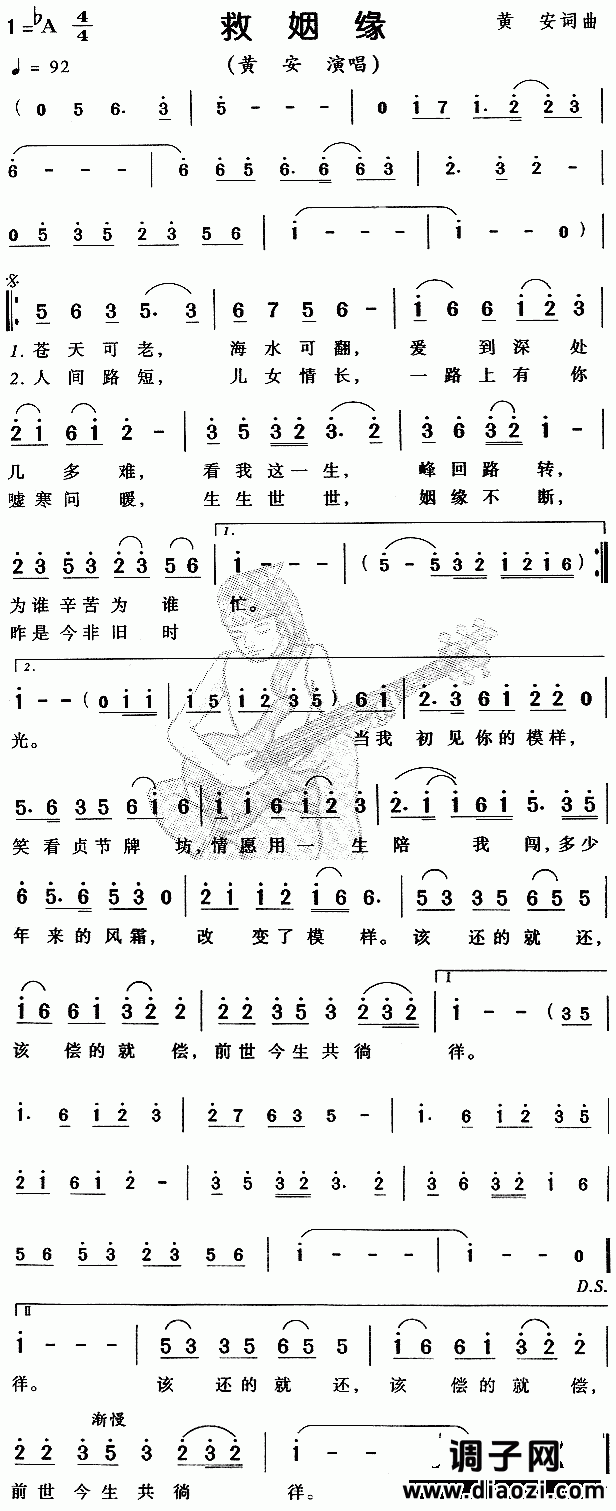 1=♭A 4/4 救 姻 缘 黄 安词曲
♩= 92 (黄 安 演唱)
( 0 5 6. 3 | 5 - - - | 0 1 7 1. 2 2 3 |
6 - - - | 6 6 5 6. 6 6 3 | 2. 3 2 - |
0 5 3 5 2 3 5 6 | 1 - - - | 1 - - 0 ) |
5 6 3 5. 3 | 6 7 5 6 - | 1 6 6 1 2 3 |
1. 苍 天 可 老, 海 水 可 翻, 爱 到 深 处
2. 人 间 路 短, 儿 女 情 长, 一 路 上 有 你
2 1 6 1 2 - | 3 5 3 2 3. 2 | 3 6 3 2 1 - |
几 多 难, 看 我 这 一 生, 峰 回 路 转,
嘘 寒 问 暖, 生 生 世 世, 姻 缘 不 断,
1.
2 3 5 3 2 3 5 6 | 1 - - - | ( 5 - 5 3 2 1 2 1 6 )
为 谁 辛 苦 为 谁 忙。
昨 是 今 非 旧 时
2.
1 - - ( 0 1 1 | 1 5 1 2 3 5 ) 6 1 | 2. 3 6 1 2 2 0 |
光。 当我 初 见 你 的 模 样,
5. 6 3 5 6 1 6 | 1 1 6 1 2 3 | 2. 1 1 6 1 5. 3 5 |
笑 看 贞 节 牌 坊, 情 愿 用 一 生 陪 我 闯, 多少
6 5. 6 5 3 0 | 2 1 1 2 1 6 6. | 5 3 3 5 6 5 5 |
年 来 的 风 霜, 改 变 了 模 样。 该 还 的 就 还,
I
1 6 6 1 3 2 2 | 2 2 3 5 3 2 3 2 | 1 - - ( 3 5 |
该 偿 的 就 偿, 前 世 今 生 共 徜 徉。
1. 6 1 2 3 | 2 7 6 3 5 - | 1. 6 1 2 3 5 |
2 1 6 1 2 - | 3 5 3 2 3. 2 | 3 6 3 2 1 6 |
5 6 5 3 2 3 5 6 | 1 - - - | 1 - - 0
D.S.
II
1 - - - | 5 3 3 5 6 5 5 | 1 6 6 1 3 2 2 |
徉。 该 还 的 就 还, 该 偿 的 就 偿,
渐慢
2 2 3 5 3 2 3 2 | 1 - -
前 世 今 生 共 徜 徉。
调子网
www.diaozi.com